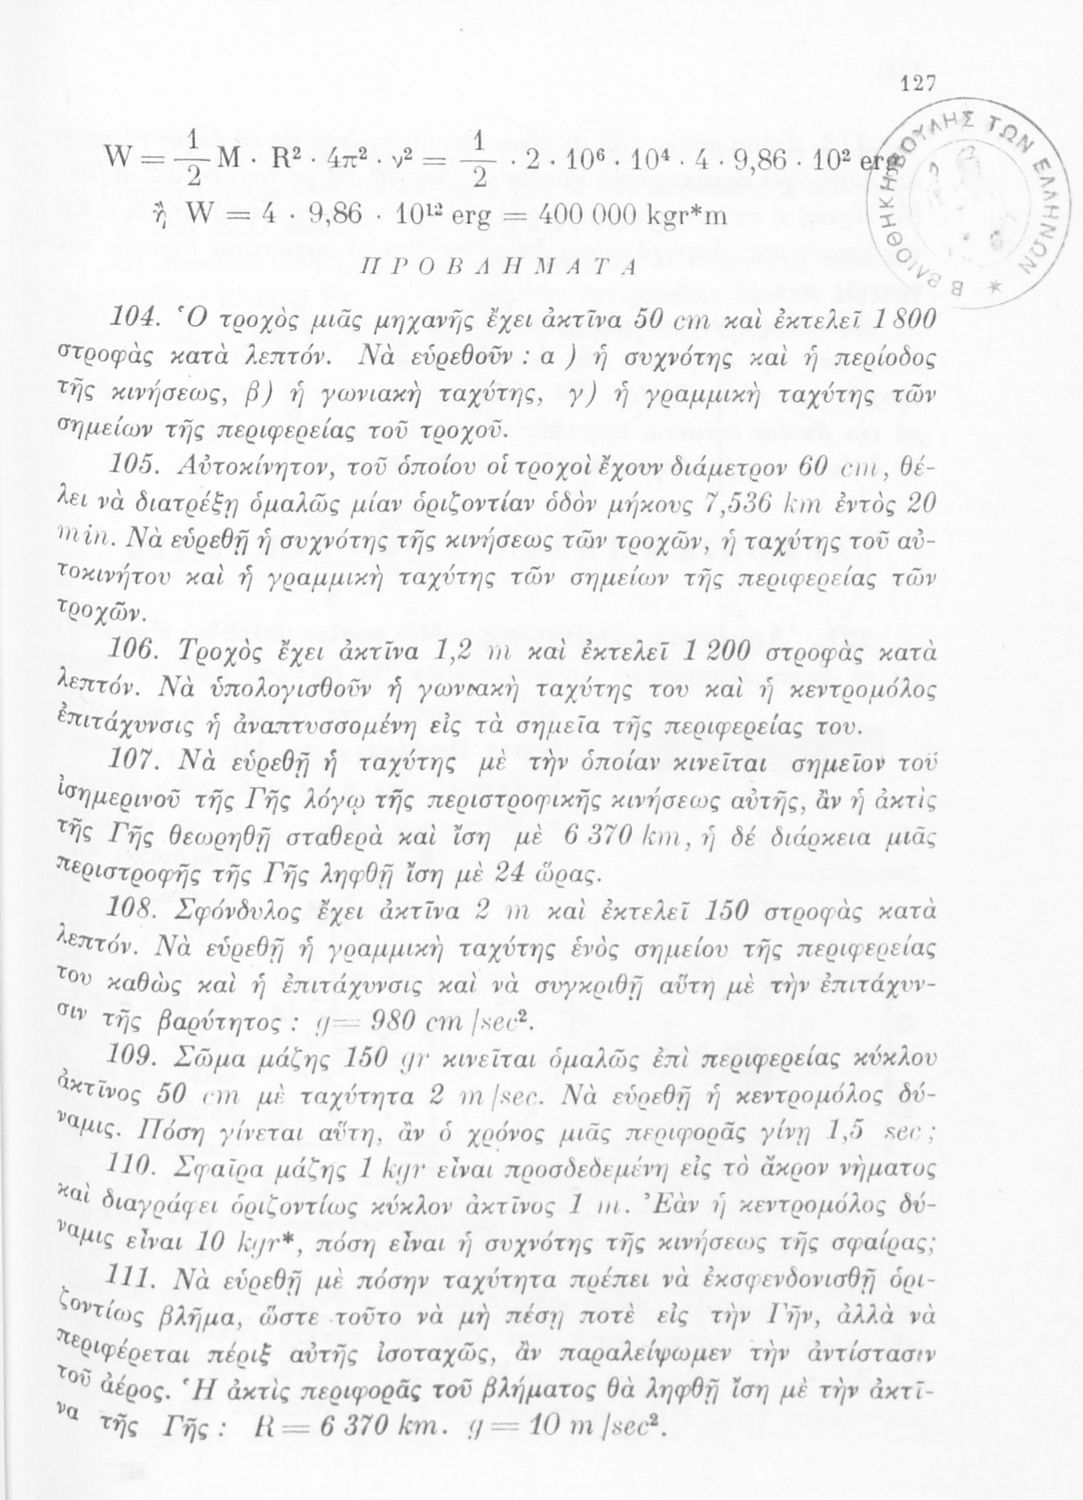 127
ΒΙΒΛΙΟΘΗΚΗ ΒΟΥΛΗΣ ΤΩΝ ΕΛΛΗΝΩΝ
W = 1/2 M · R² · 4π² · ν² = 1/2 · 2 · 10⁶ · 10⁴ · 4 · 9,86 · 10² erg
ἢ W = 4 · 9,86 · 10¹² erg = 400 000 kgr*m
ΠΡΟΒΛΗΜΑΤΑ
104. Ὁ τροχὸς μιᾶς μηχανῆς ἔχει ἀκτῖνα 50 cm καὶ ἐκτελεῖ 1 800
στροφὰς κατὰ λεπτόν. Νὰ εὑρεθοῦν : α ) ἡ συχνότης καὶ ἡ περίοδος
τῆς κινήσεως, β) ἡ γωνιακὴ ταχύτης, γ) ἡ γραμμικὴ ταχύτης τῶν
σημείων τῆς περιφερείας τοῦ τροχοῦ.
105. Αὐτοκίνητον, τοῦ ὁποίου οἱ τροχοὶ ἔχουν διάμετρον 60 cm, θέ-
λει νὰ διατρέξῃ ὁμαλῶς μίαν ὁριζοντίαν ὁδὸν μήκους 7,536 km ἐντὸς 20
min. Νὰ εὑρεθῇ ἡ συχνότης τῆς κινήσεως τῶν τροχῶν, ἡ ταχύτης τοῦ αὐ-
τοκινήτου καὶ ἡ γραμμικὴ ταχύτης τῶν σημείων τῆς περιφερείας τῶν
τροχῶν.
106. Τροχὸς ἔχει ἀκτῖνα 1,2 m καὶ ἐκτελεῖ 1 200 στροφὰς κατὰ
λεπτόν. Νὰ ὑπολογισθοῦν ἡ γωνιακὴ ταχύτης του καὶ ἡ κεντρομόλος
ἐπιτάχυνσις ἡ ἀναπτυσσομένη εἰς τὰ σημεῖα τῆς περιφερείας του.
107. Νὰ εὑρεθῇ ἡ ταχύτης μὲ τὴν ὁποίαν κινεῖται σημεῖον τοῦ
ἰσημερινοῦ τῆς Γῆς λόγῳ τῆς περιστροφικῆς κινήσεως αὐτῆς, ἂν ἡ ἀκτὶς
τῆς Γῆς θεωρηθῇ σταθερὰ καὶ ἴση μὲ 6 370 km, ἡ δέ διάρκεια μιᾶς
περιστροφῆς τῆς Γῆς ληφθῇ ἴση μὲ 24 ὥρας.
108. Σφόνδυλος ἔχει ἀκτῖνα 2 m καὶ ἐκτελεῖ 150 στροφὰς κατὰ
λεπτόν. Νὰ εὑρεθῇ ἡ γραμμικὴ ταχύτης ἑνὸς σημείου τῆς περιφερείας
του καθὼς καὶ ἡ ἐπιτάχυνσις καὶ νὰ συγκριθῇ αὕτη μὲ τὴν ἐπιτάχυν-
σιν τῆς βαρύτητος : g = 980 cm/sec².
109. Σῶμα μάζης 150 gr κινεῖται ὁμαλῶς ἐπὶ περιφερείας κύκλου
ἀκτῖνος 50 cm μὲ ταχύτητα 2 m/sec. Νὰ εὑρεθῇ ἡ κεντρομόλος δύ-
ναμις. Πόση γίνεται αὕτη, ἂν ὁ χρόνος μιᾶς περιφορᾶς γίνῃ 1,5 sec;
110. Σφαῖρα μάζης 1 kgr εἶναι προσδεδεμένη εἰς τὸ ἄκρον νήματος
καὶ διαγράφει ὁριζοντίως κύκλον ἀκτῖνος 1 m. Ἐὰν ἡ κεντρομόλος δύ-
ναμις εἶναι 10 kgr*, πόση εἶναι ἡ συχνότης τῆς κινήσεως τῆς σφαίρας;
111. Νὰ εὑρεθῇ μὲ πόσην ταχύτητα πρέπει νὰ ἐκσφενδονισθῇ ὁρι-
ζοντίως βλῆμα, ὥστε τοῦτο νὰ μὴ πέσῃ ποτὲ εἰς τὴν Γῆν, ἀλλὰ νὰ
περιφέρεται πέριξ αὐτῆς ἰσοταχῶς, ἂν παραλείψωμεν τὴν ἀντίστασιν
τοῦ ἀέρος. Ἡ ἀκτὶς περιφορᾶς τοῦ βλήματος θὰ ληφθῇ ἴση μὲ τὴν ἀκτῖ-
να τῆς Γῆς : R = 6 370 km. g = 10 m/sec².